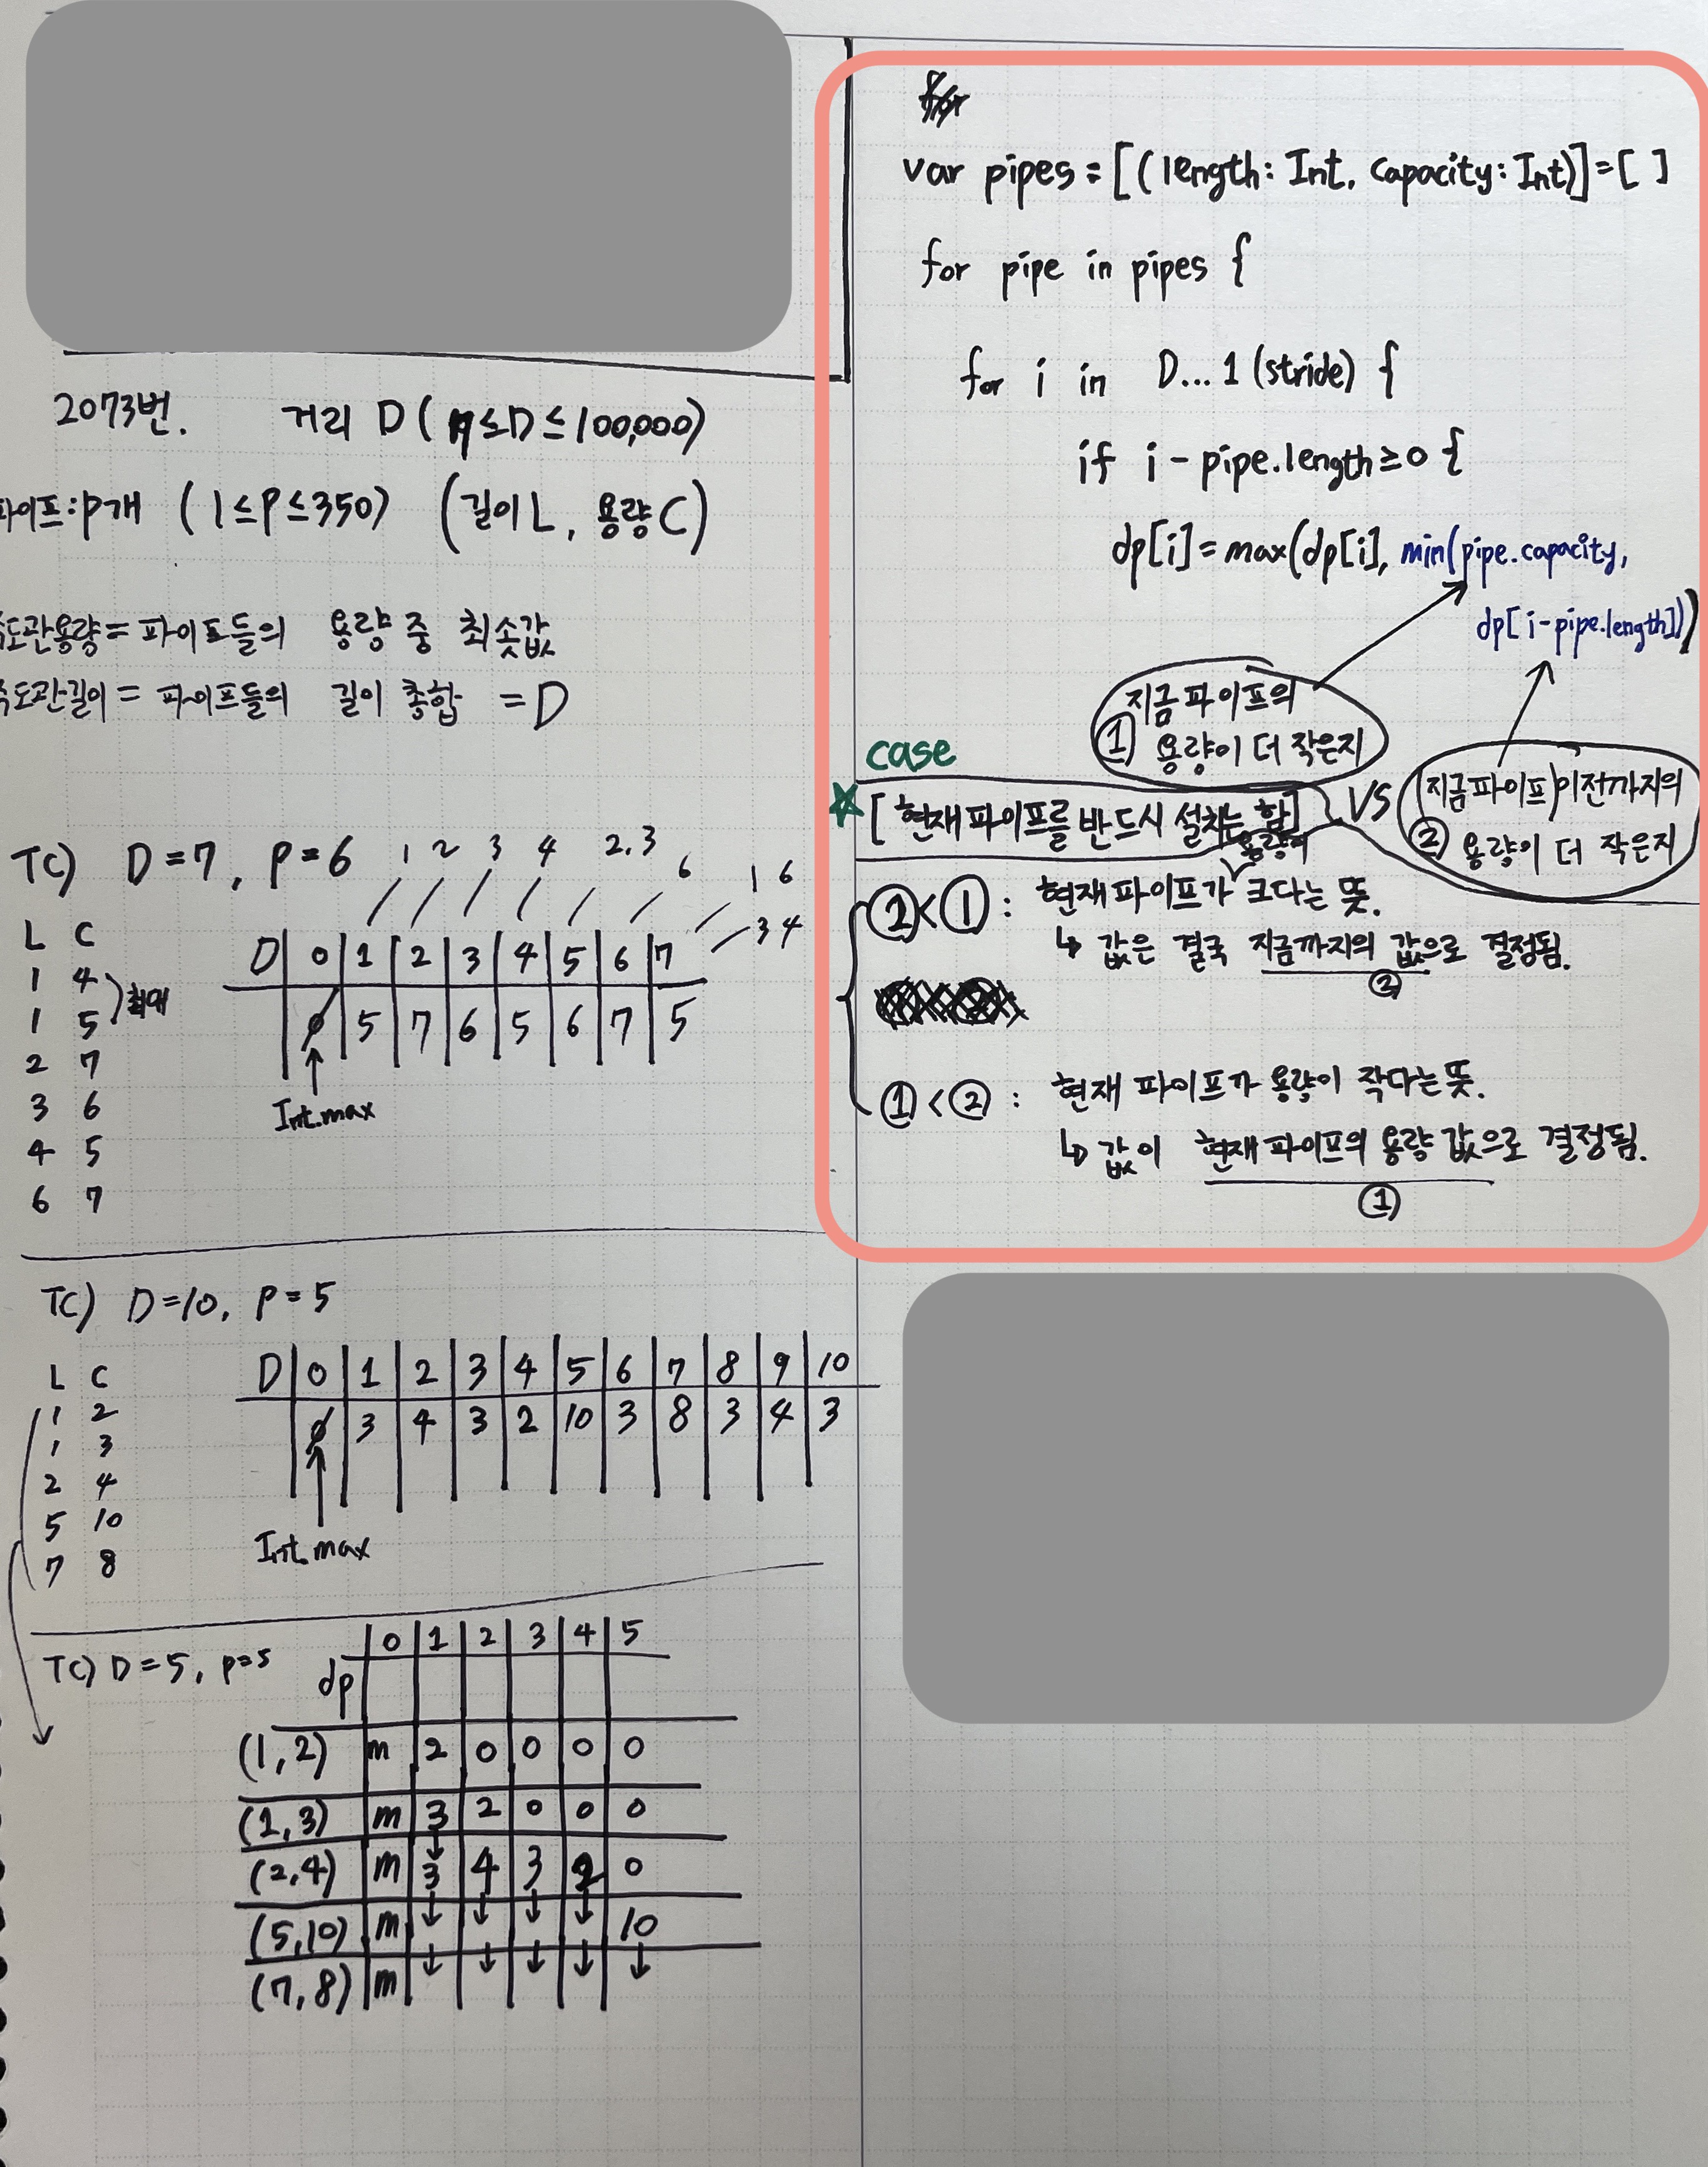 2073번. 거리 D ( ≤D≤100,000)
파이프:P개 (1≤P≤350) (길이 L, 용량 C)
수도관용량 = 파이프들의 용량 중 최솟값
수도관길이 = 파이프들의 길이 총합 = D
TC) D=7, P=6
1 2 3 4 2.3 6 1 6
3 4
L C
1 4
1 5
2 7
3 6
4 5
6 7
D 0 1 2 3 4 5 6 7
0 5 7 6 5 6 7 5
Int.max
TC) D=10, P=5
L C
1 2
1 3
2 4
5 10
7 8
D 0 1 2 3 4 5 6 7 8 9 10
0 3 4 3 2 10 3 8 3 4 3
Int.max
TC) D=5, P=5
0 1 2 3 4 5
dp
(1,2) m 2 0 0 0 0
(1,3) m 3 2 0 0 0
(2,4) m 3 4 3 2 0
(5,10) m ↓ ↓ ↓ ↓ 10
(7,8) m ↓ ↓ ↓ ↓ ↓
for
var pipes = [(length: Int, capacity: Int)] = [ ]
for pipe in pipes {
for i in D...1 (stride) {
if i - pipe.length ≥ 0 {
dp[i] = max(dp[i], min(pipe.capacity,
dp[i-pipe.length]))
지금 파이프의
① 용량이 더 작은지
VS
(지금 파이프) 이전까지의
② 용량이 더 작은지
case
☆ [현재 파이프를 반드시 설치는 함]
②<① : 현재 파이프가 용량이 크다는 뜻.
↳ 값은 결국 지금까지의 값으로 결정됨.
②
①<② : 현재 파이프가 용량이 작다는 뜻.
↳ 값이 현재 파이프의 용량 값으로 결정됨.
①